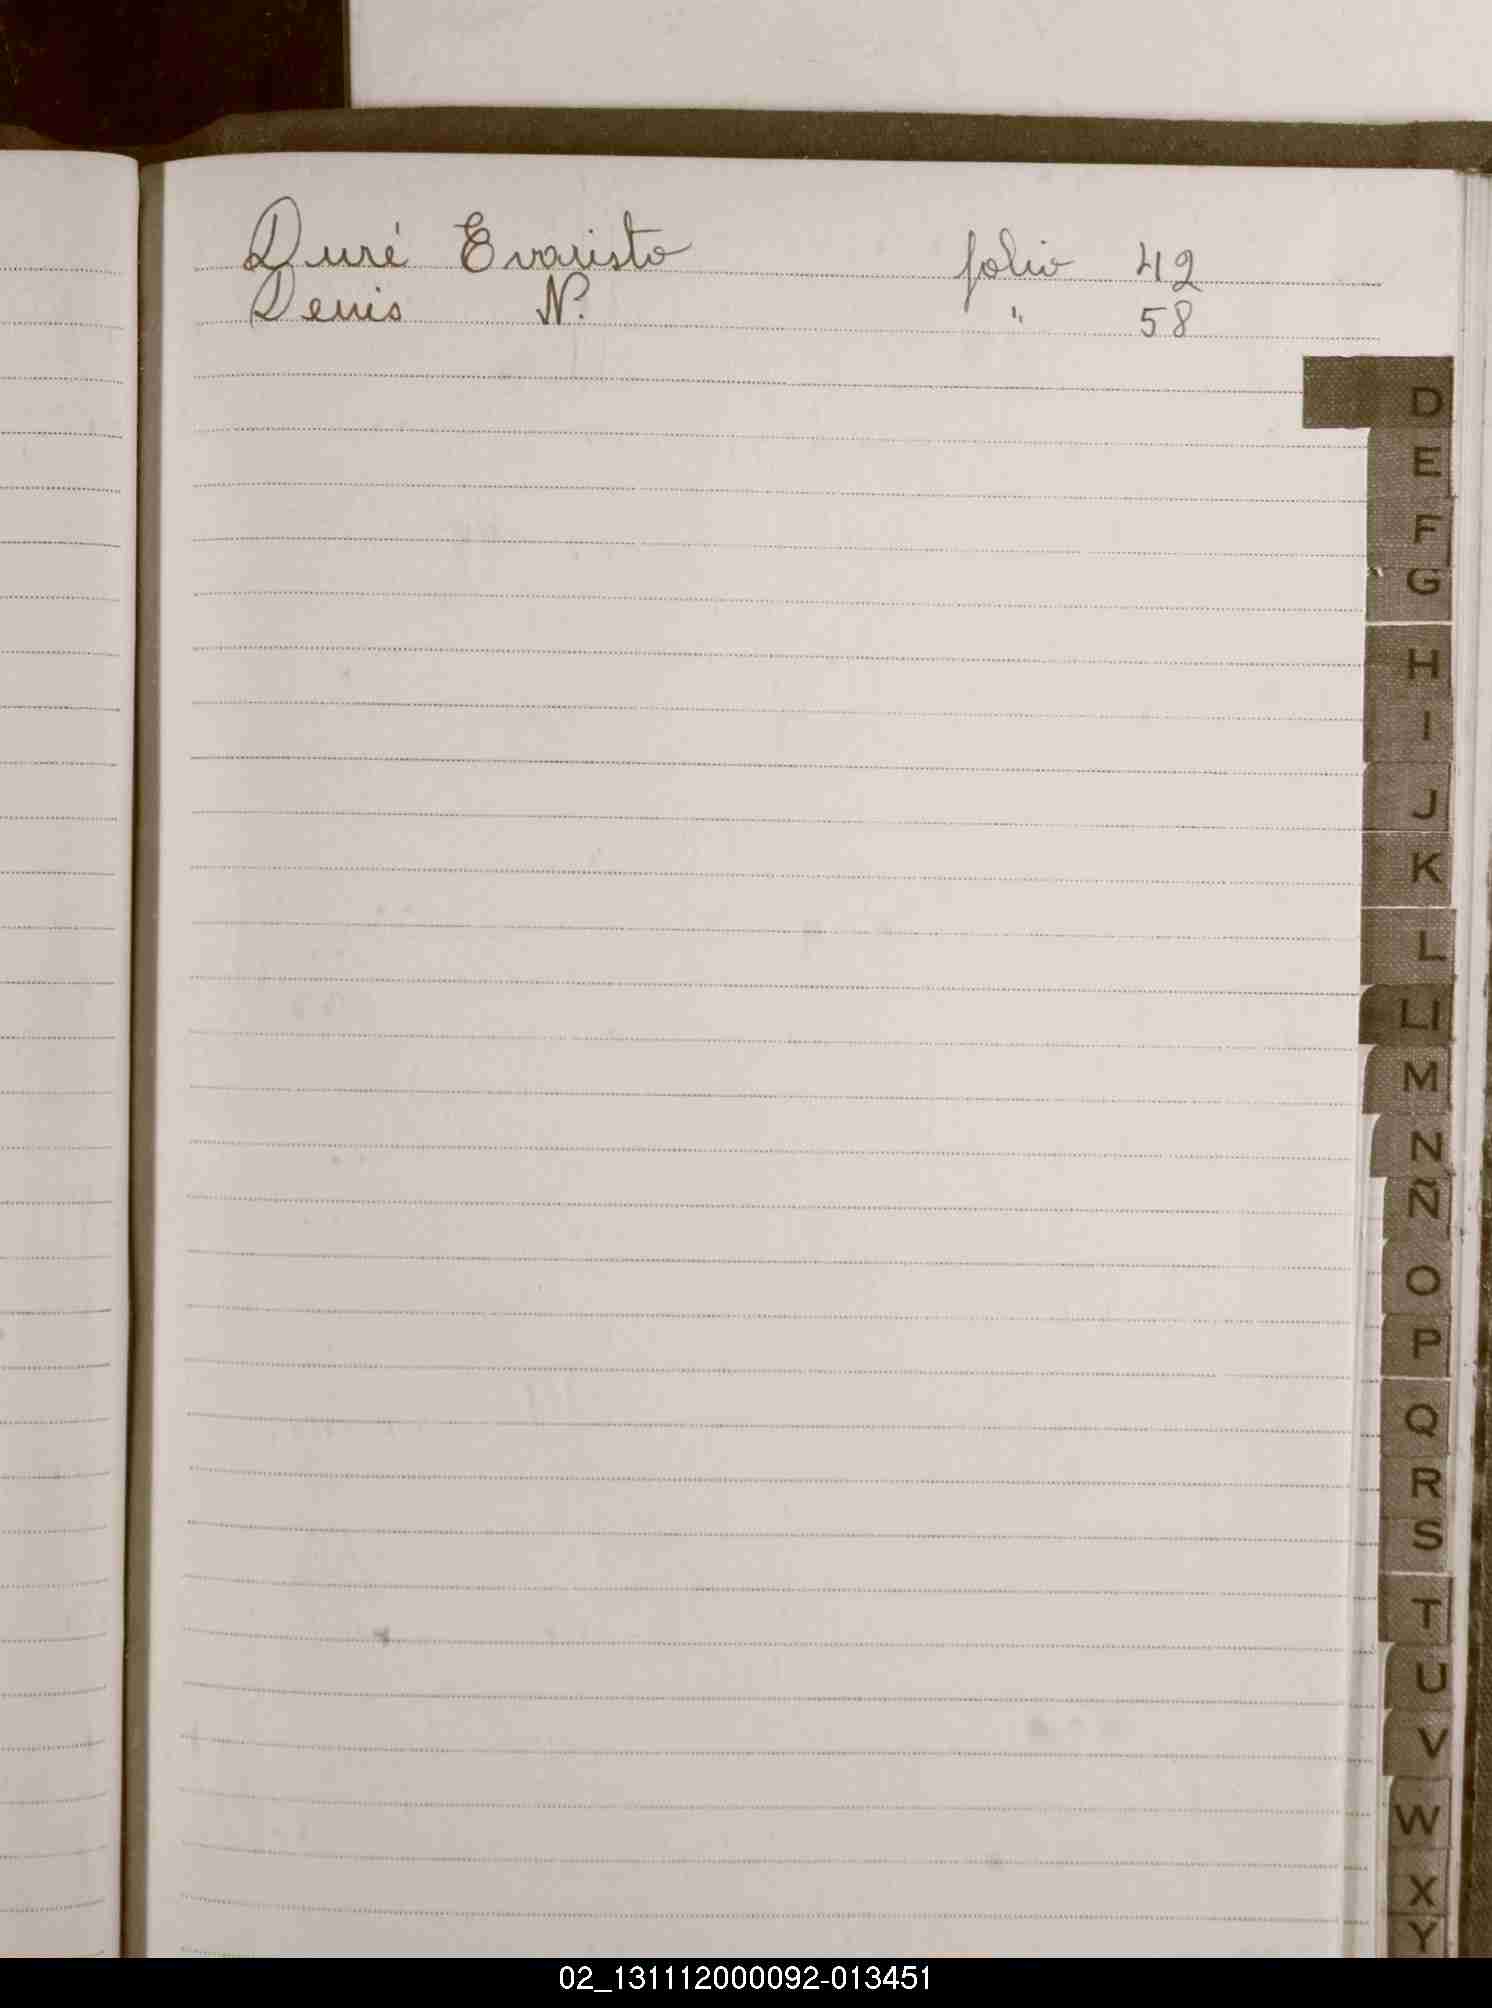 Duré Evaristo folio 42
Denis N. " 58
D
E
F
G
H
I
J
K
L
Ll
M
N
Ñ
O
P
Q
R
S
T
U
V
W
X
Y
02_131112000092-013451